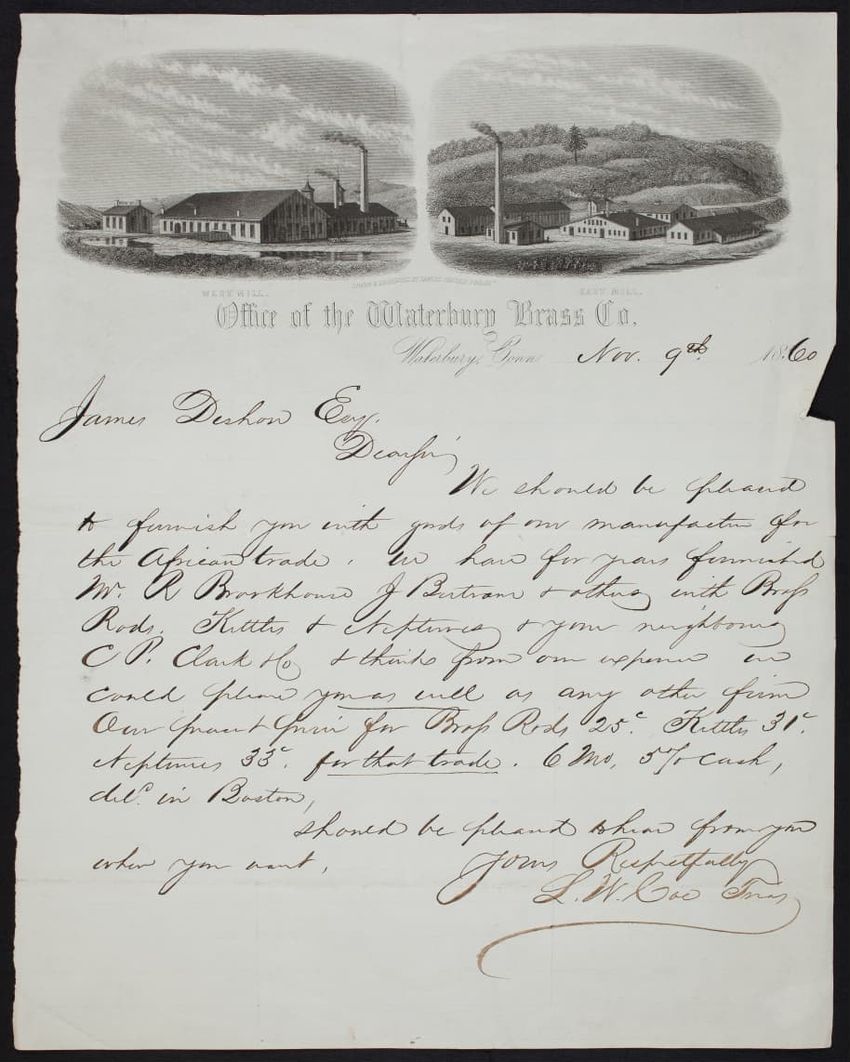 WEST MILL.
EAST MILL.
Office of the Waterbury Brass Co.
Waterbury, Conn. Nov. 9th 1860
James Deshon Esq.
Dear Sir
We should be pleased
to furnish you with goods of our manufacture for
the African trade. We have for years furnished
Mr. R Brookhouse J Bertram & others with Brass
Rods. Kettles & Neptunes & your neighbours
C P. Clark & Co & think from our experience we
could please you as well as any other firm
Our present price for Brass Rods 25c. Kettles 31c.
Neptunes 33c. for that trade. 6 Mo, 5% Cash,
deld. in Boston,
should be pleased to hear from you
when you want,
Yours Respectfully
L. W. Coe Treas